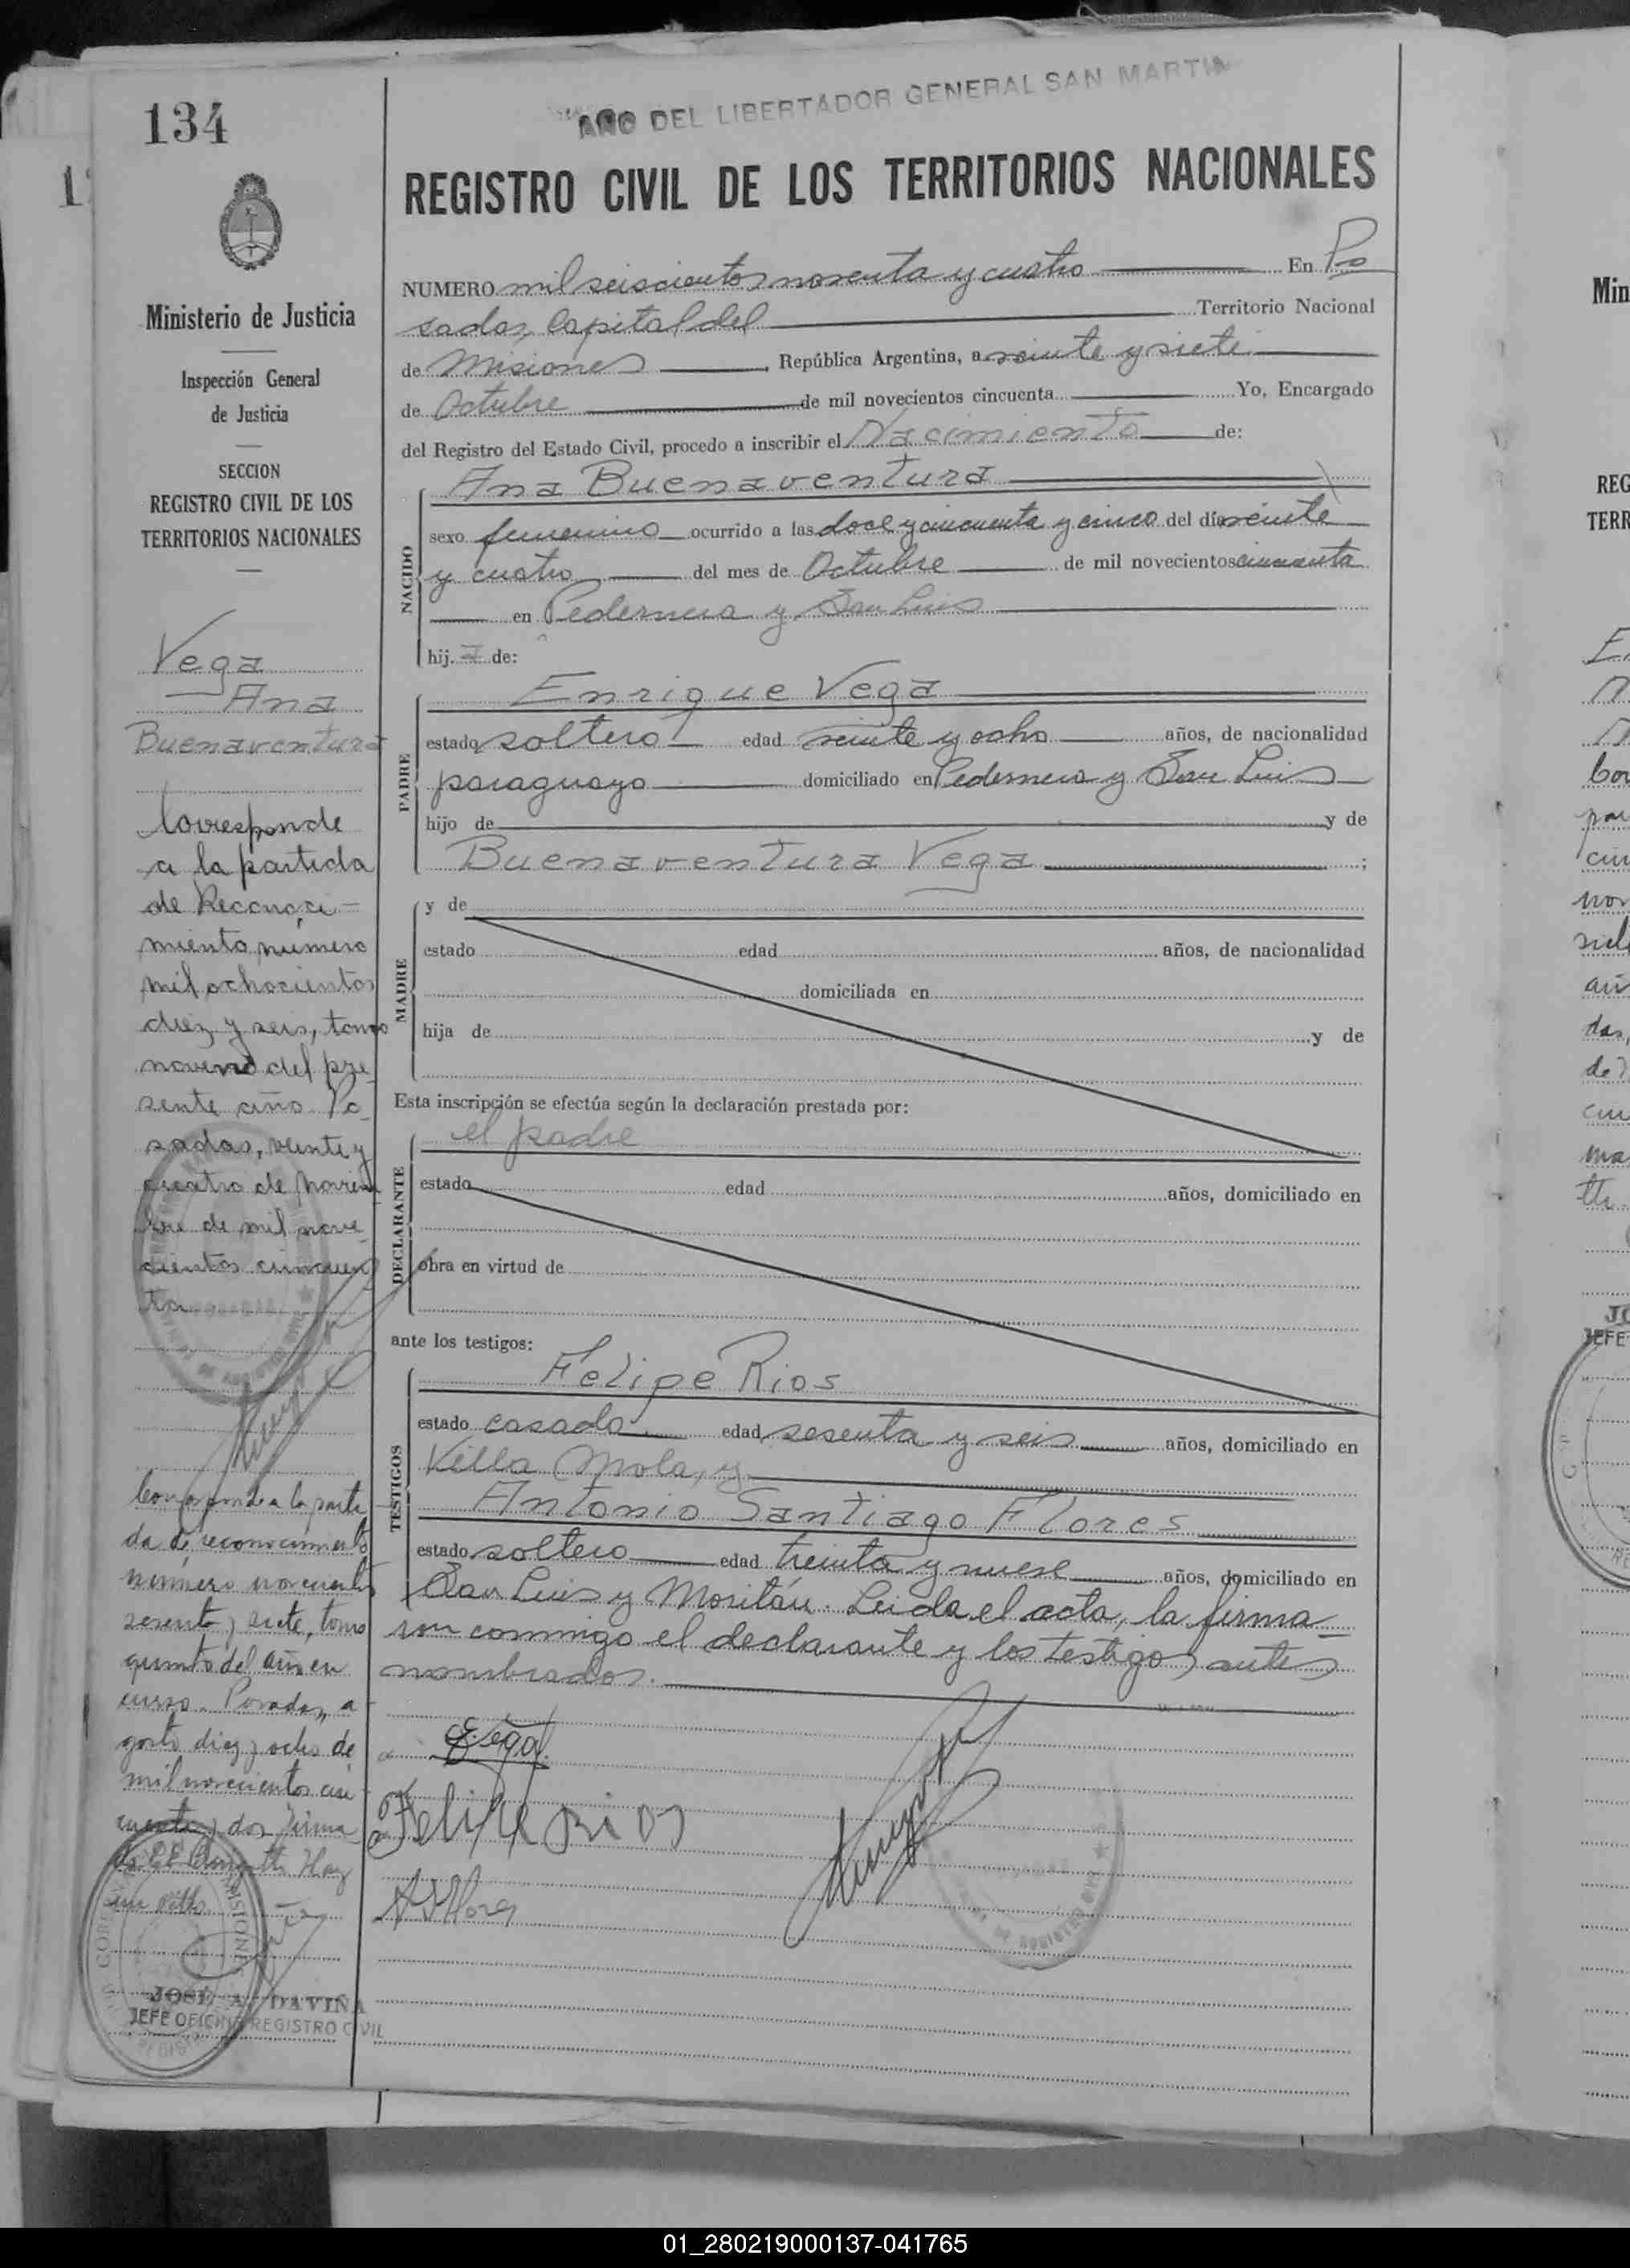 134
AÑO DEL LIBERTADOR GENERAL SAN MARTIN
REGISTRO CIVIL DE LOS TERRITORIOS NACIONALES
Ministerio de Justicia
Inspección General
de Justicia
SECCION
REGISTRO CIVIL DE LOS
TERRITORIOS NACIONALES
Vega
Ana
Buenaventura
Corresponde
a la partida
de Reconoci-
miento número
mil ochocientos
diez y seis, tomo
noveno del pre-
sente año. Po-
sadas, veinte y
cuatro de Noviem
bre de mil nove-
cientos cincuen
ta
Corresponde a la parti
da de reconocimiento
número novecientos
sesenta y siete, tomo
quinto del año en
curso. Posadas, a
gosto diez y ocho de
mil novecientos cin
cuenta y dos. Firma
do Hay
un sello
JOSÉ A. DAVIÑA
JEFE OFICINA REGISTRO CIVIL
NUMERO mil seiscientos noventa y cuatro En Po
sadas, Capital del Territorio Nacional
de Misiones, República Argentina, a veinte y siete
de Octubre de mil novecientos cincuenta Yo, Encargado
del Registro del Estado Civil, procedo a inscribir el Nacimiento de:
NACIDO
Ana Buenaventura
sexo femenino ocurrido a las doce y cincuenta y cinco del día veinte
y cuatro del mes de Octubre de mil novecientos cincuenta
en Pedernera y San Luis
hij. a de:
PADRE
Enrique Vega
estado soltero edad veinte y ocho años, de nacionalidad
paraguayo domiciliado en Pedernera y San Luis
hijo de y de
Buenaventura Vega ;
MADRE
y de
estado edad años, de nacionalidad
domiciliada en
hija de y de
Esta inscripción se efectúa según la declaración prestada por:
DECLARANTE
el padre
estado edad años, domiciliado en
obra en virtud de
ante los testigos:
TESTIGOS
Felipe Rios
estado casado edad sesenta y seis años, domiciliado en
Villa Mola, y
Antonio Santiago Flores
estado soltero edad treinta y nueve años, domiciliado en
San Luis y Moritán. Leida el acta, la firma-
ron conmigo el declarante y los testigos antes
nombrados.
E. Vega
Felipe Rios
A S Flores
01_280219000137-041765